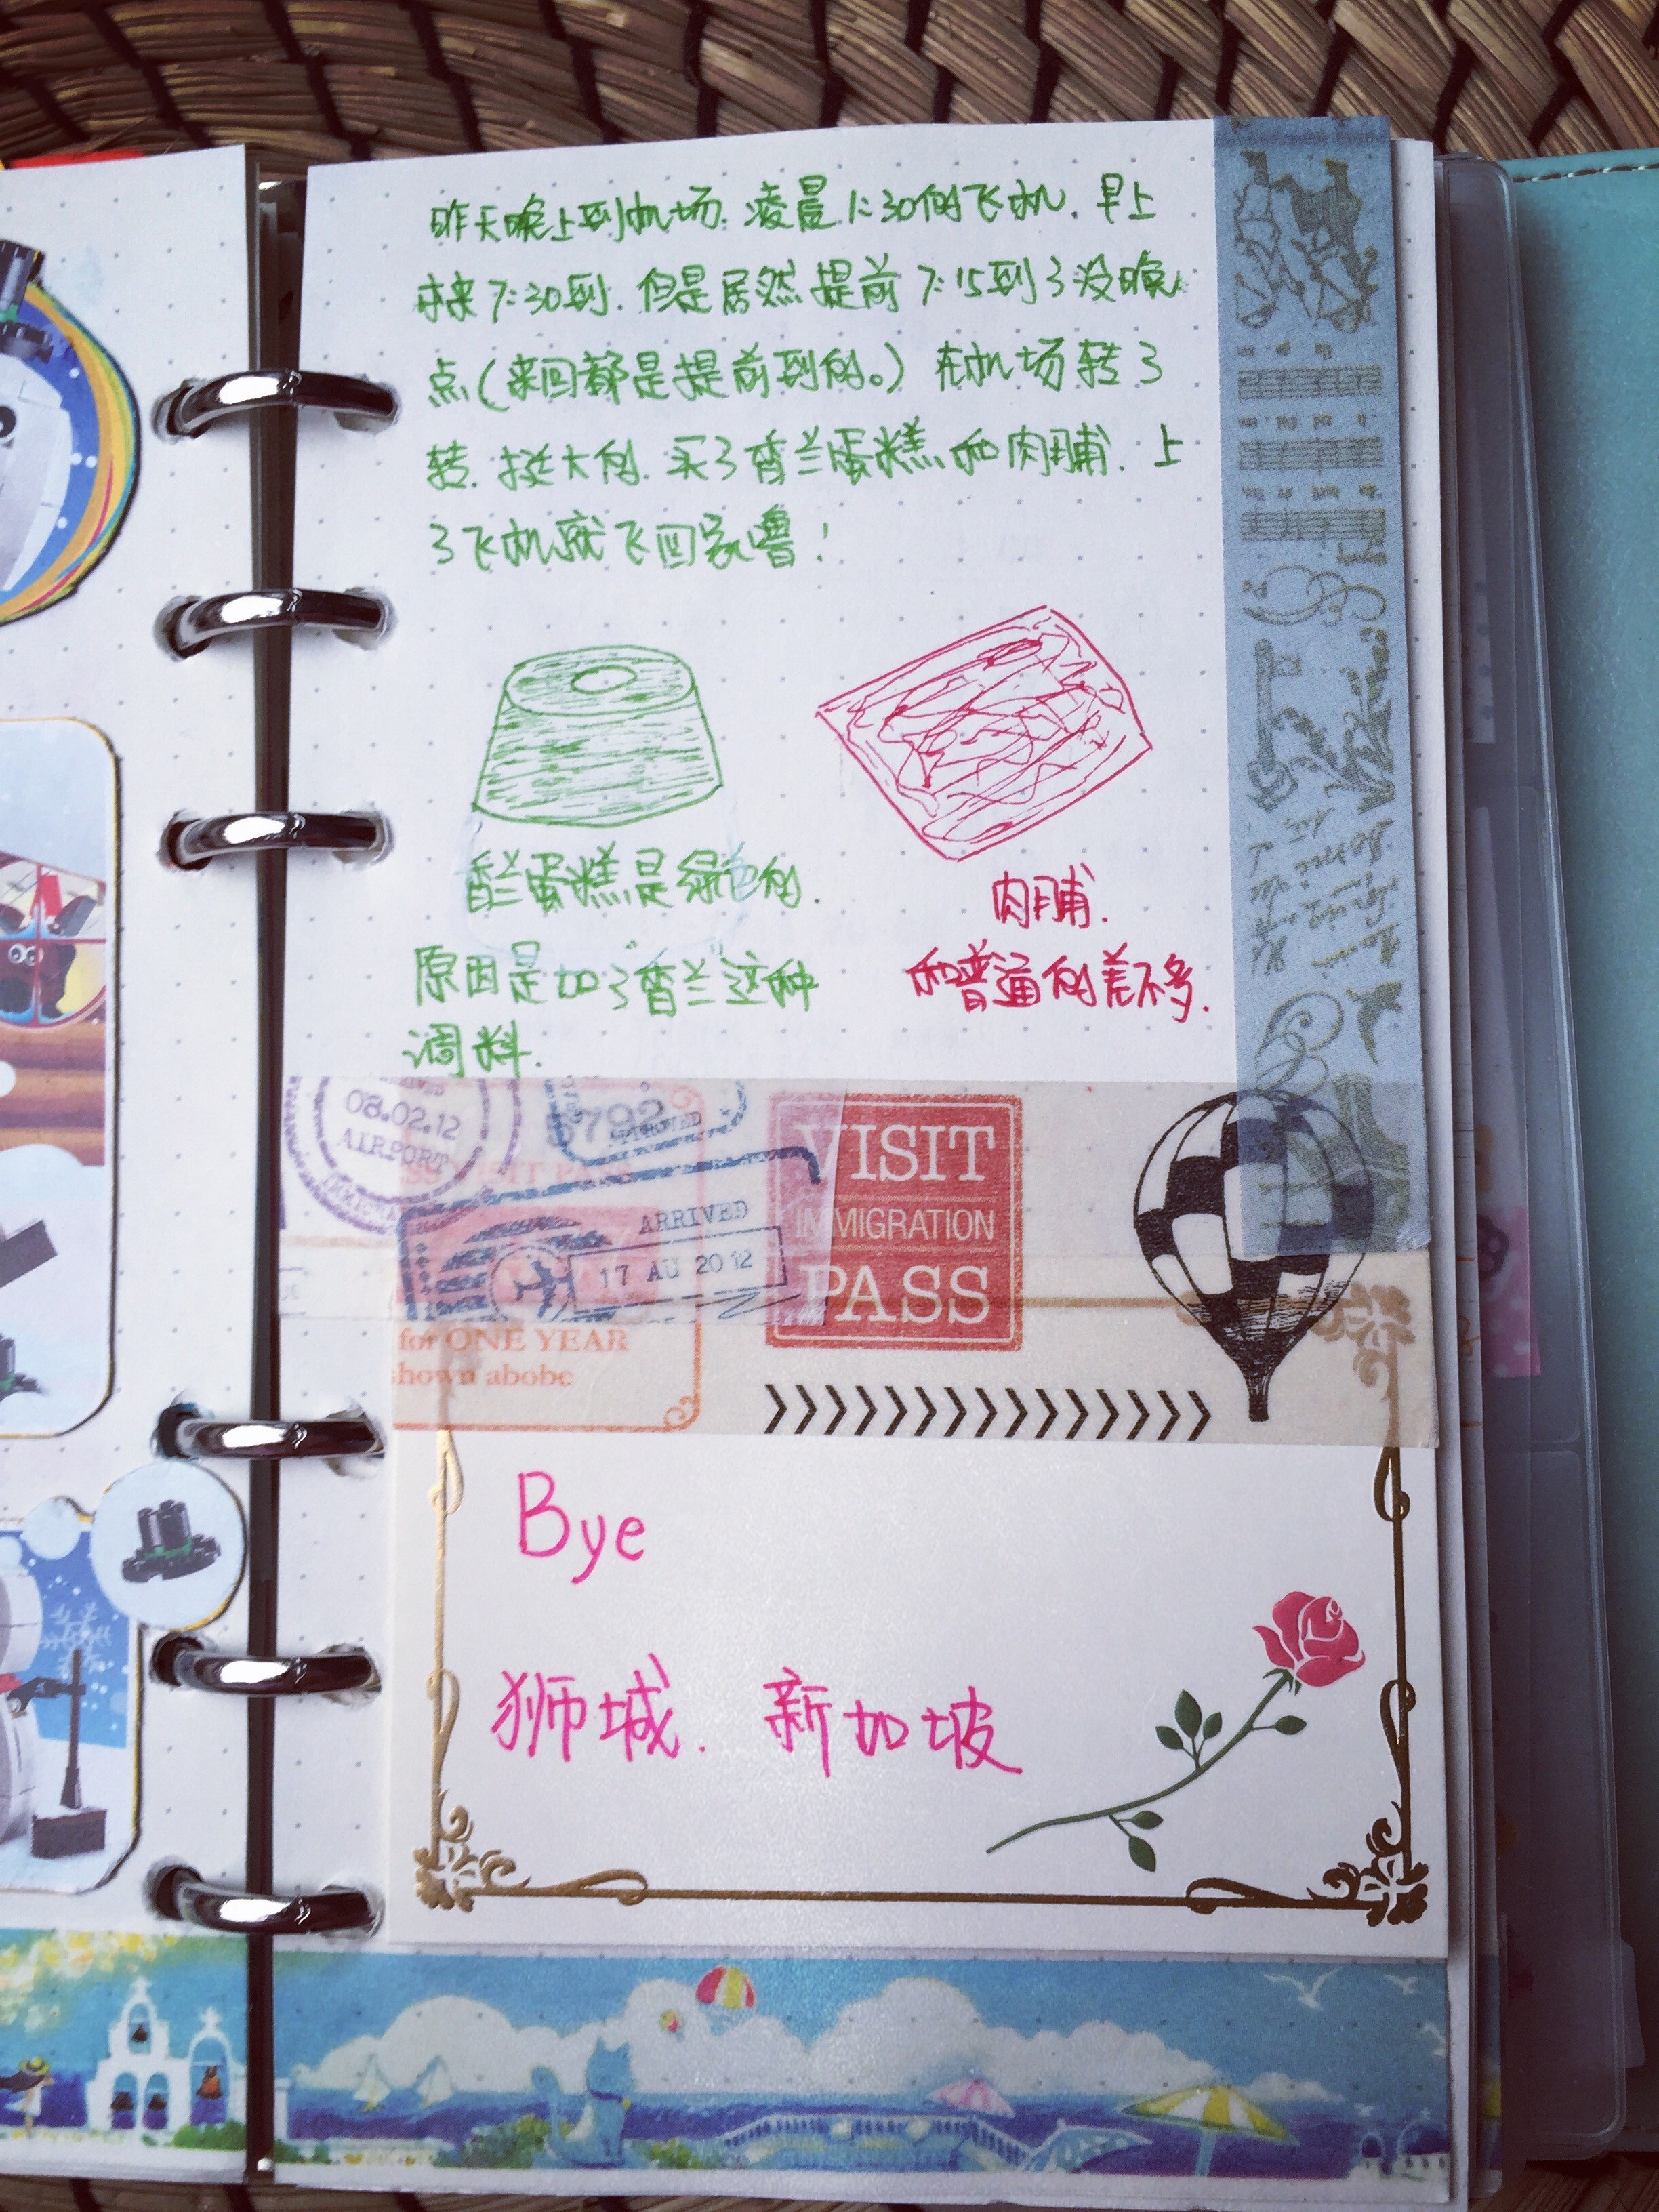 昨天晚上到机场.凌晨1:30的飞机.早上
本来7:30到.但是居然提前7:15到了没晚
点(来回都是提前到的。)在机场转了
转.挺大的.买了香兰蛋糕和肉脯.上
了飞机就飞回家噜!
香兰蛋糕是绿色的.
原因是加了"香兰"这种
调料.
肉脯.
和普通的差不多.
08.02.12
AIRPORT
5792
APPROVED
ARRIVED
17 AU 2012
for ONE YEAR
shown abobe
VISIT
IMMIGRATION
PASS
Bye
狮城.新加坡